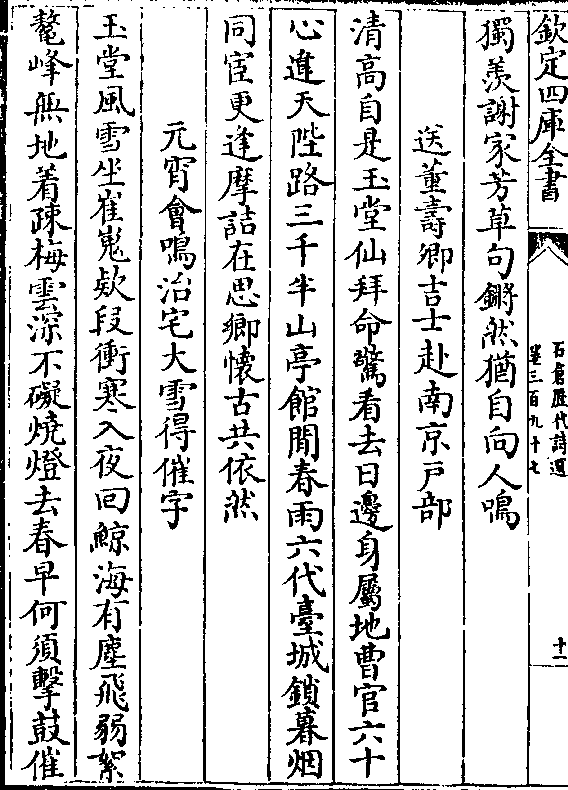 欽定四庫全書
石倉歷代詩選
卷三百九十七
十一
獨羨謝家芳草句鏘然猶自向人鳴
送董壽卿吉士赴南京戸部
清高自是玉堂仙拜命驚看去日邊身屬地曹官六十
心違天陛路三千半山亭館閒春雨六代臺城鎖暮烟
同宦更逢摩詰在思鄉懷古共依然
元宵會鳴治宅大雪得催字
玉堂風雪坐崔嵬欵段衝寒入夜回鯨海有塵飛弱絮
鼇峰無地着疎梅雲深不礙燒燈去春早何須擊鼓催